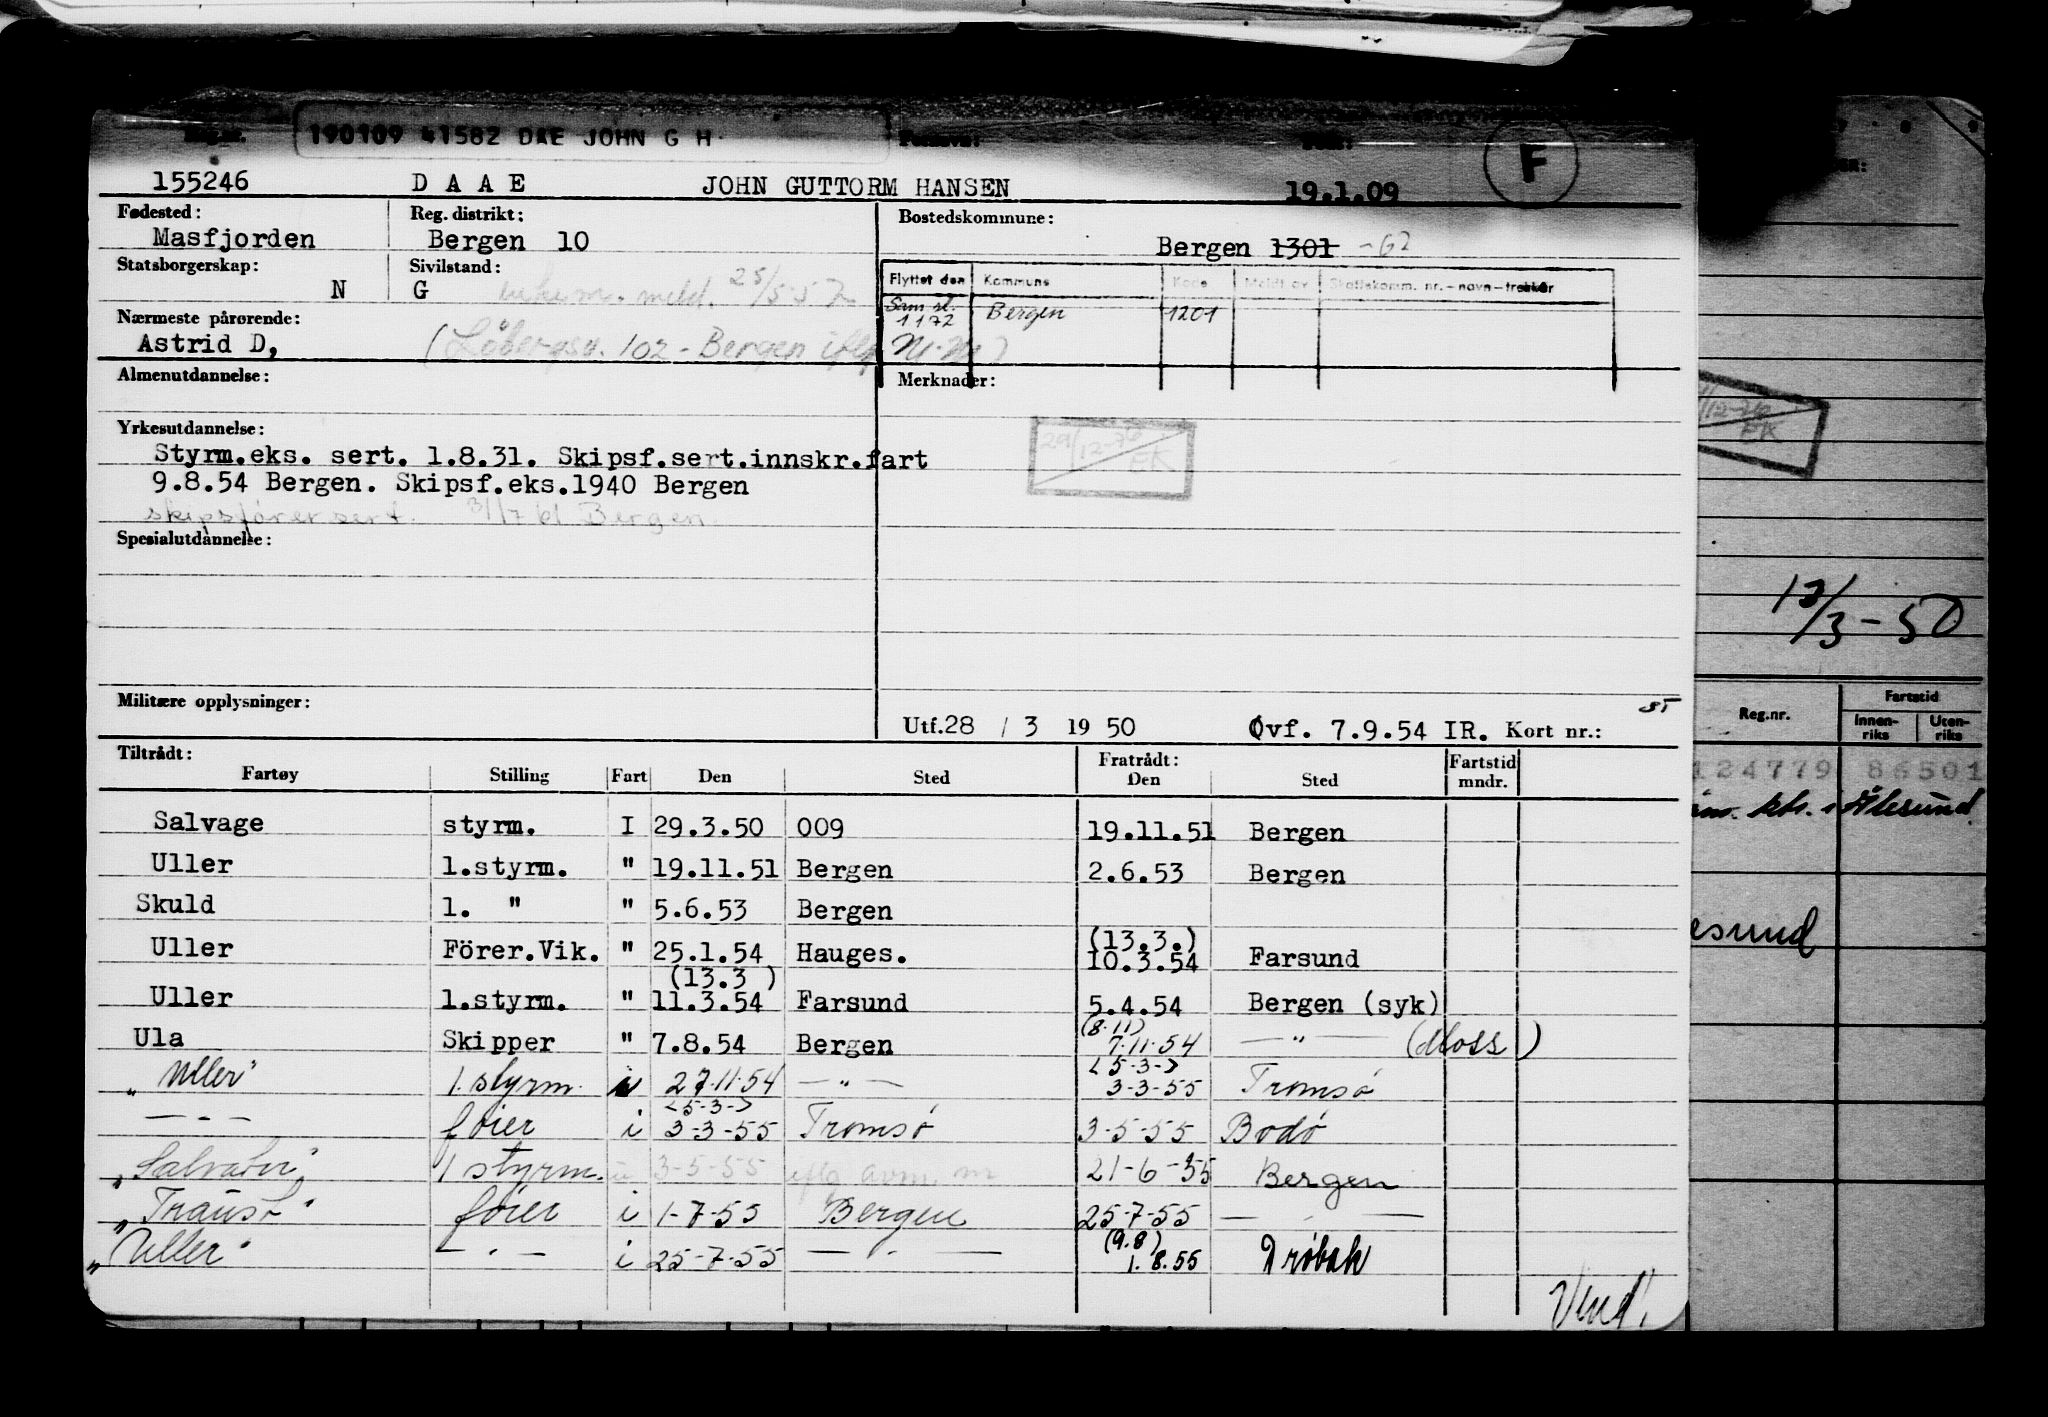 190109 41582 DAE JOHN G H
F
155246 D A A E JOHN GUTTORM HANSEN 19.1.09
Fødested: Reg. distrikt: Bostedskommune:
Masfjorden Bergen 10 Bergen 1301 -62
Statsborgerskap: Sivilstand:
N G meld. 25/5-57
Flyttet den Kommune Kode Meldt av Skattekomm. nr. – navn – trekkår
1 1 72 Bergen 1201
Nærmeste pårørende:
Astrid D, 102 - Bergen iflg
Almenutdannelse: Merknader:
Yrkesutdannelse:
29/12-76 EK
Styrm.eks. sert. 1.8.31. Skipsf.sert.innskr.fart
9.8.54 Bergen. Skipsf.eks.1940 Bergen
skipsförersert. 31/7 61 Bergen.
Spesialutdannelse:
Militære opplysninger:
Utf.28 / 3 19 50 Øvf. 7.9.54 IR. Kort nr.:
Tiltrådt: Fratrådt:
Fartøy Stilling Fart Den Sted Den Sted Fartstid mndr.
Salvage styrm. I 29.3.50 009 19.11.51 Bergen
Uller 1.styrm. " 19.11.51 Bergen 2.6.53 Bergen
Skuld 1. " " 5.6.53 Bergen
Uller Förer.Vik. " 25.1.54 Hauges. (13.3.) 10.3.54 Farsund
Uller 1.styrm. " (13.3 ) 11.3.54 Farsund 5.4.54 Bergen (syk)
Ula Skipper " 7.8.54 Bergen (8.11) 7.11.54 — " — (Moss)
"Uller" 1. styrm. i 27.11.54 — " — <5-3-> 3-3-55 Tromsø
— " — fører i <5-3-> 3-3-55 Tromsø 3-5-55 Bodø
1 styrm. u 3-5-55 iflg avm. m 21-6-55 Bergen
fører i 1-7-55 Bergen 25-7-55 — " —
"Uller" — " — i 25-7-55 — " — (9.8) 1.8.55 Drøbak
Vend!
12-76
EK
13/3-50
Reg.nr. Fartstid
Innen-riks Uten-riks
124779 86501
Ålesund
esund